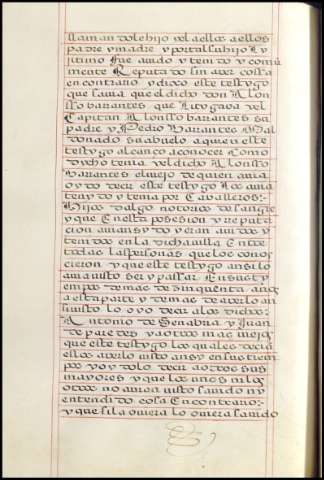 llamandole hijo y el a ellos a ellos
padre y madre y por tal su hijo ly
jitimo fue auido y tenido y comũ
mente Reputado sin aver cossa
en contrario y dixo este testygo
que savia que el dicho don Alon
sso barrantes que litygava y el
Capitan Alonsso barrantes su
padre y Pedro barantes Mal
donado su abuelo a quien este
testygo alcanço a conocer Como
dicho tenia y el dicho Alonsso
barrantes el viejo de quien avia
oydo decir este testygo los avia
tenydo y tenia por Cavalleros
Hijos dalgo notorios de sangre
y que En esta posesion y reputa
cion avian sydo y eran avidos y
tenidos en la dicha villa Entre
todas las personas que los conos
cieron y que este testygo ansi lo
avia visto ser y passar En su ty
empo de mas de zinquenta años
a esta parte y demas de averlo an
si visto lo oyo decir a los dichos
Antonio de Senabria y Juan
de paredes y a otros mas viejos
que este testygo los quales decia
ellos averlo visto ansy en sus tiem
pos y oydolo decir a otros sus
mayores y que los unos ni los
otros no avian visto savido ny
entendido cosa En contrario
y que si la oviera lo oviera savido